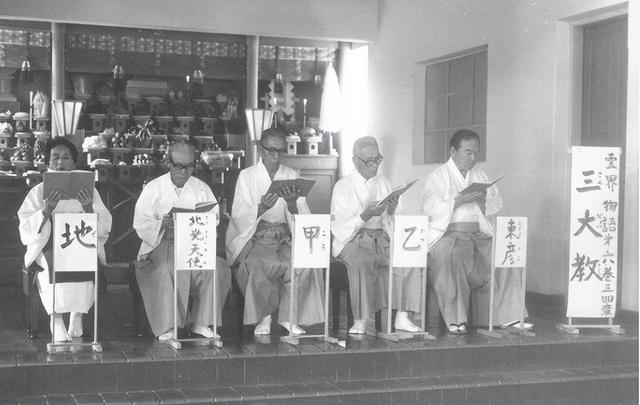 霊界物語才六巻三四章
三大教
東彦
乙
甲
北光天使
地